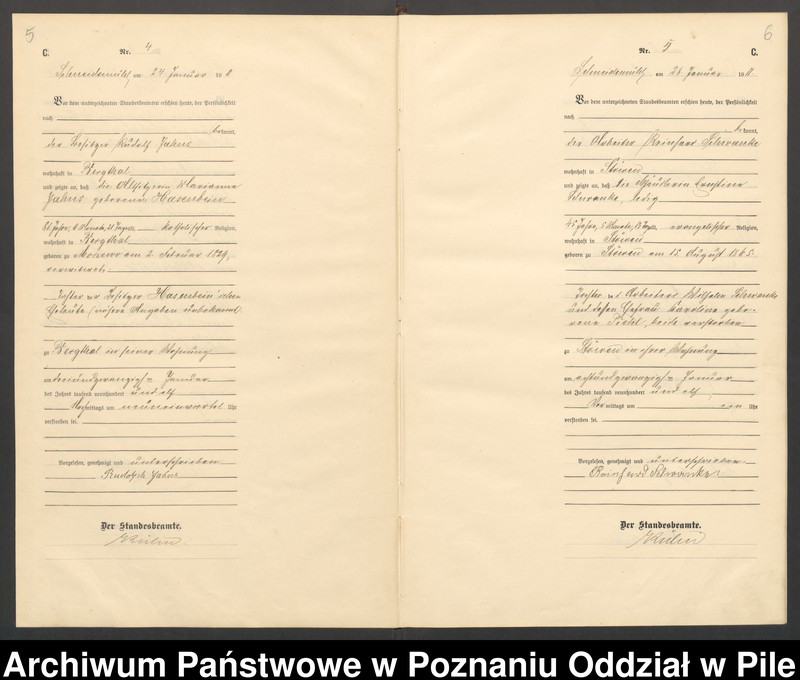 5
C.
Nr. 4
Schneidemühl, am 24 Januar 19 11
Vor dem unterzeichneten Standesbeamten erschien heute, der Persönlichkeit
nach
be kannt,
der Besitzer Rudolf Jahns
wohnhaft in Bergthal
und zeigte an, daß die Altsitzerin Marianna
Jahns geborenen Hasenbein
81 Jahre, katholischer Religion,
wohnhaft in Bergthal
geboren zu am 2. Februar 1829,
verwitwet
Tochter der Besitzer Hasenbein'schen
Eheleute (nähere Angaben unbekannt)
zu Bergthal in seiner Wohnung
am Januar
des Jahres tausend neunhundert und elf
Nachmittags um Uhr
verstorben sei.
Vorgelesen, genehmigt und unterschrieben
Rudolf Jahns
Der Standesbeamte.
6
Nr. 5
C.
Schneidemühl, am 28 Januar 19 11
Vor dem unterzeichneten Standesbeamten erschien heute, der Persönlichkeit
nach
be kannt,
der Arbeiter Reinhard Schwanke
wohnhaft in Stöwen
und zeigte an, daß die Ernstine
Schwanke, ledig
45 Jahre, 5 Monate, 13 Tage, evangelischer Religion,
wohnhaft in Stöwen
geboren zu Stöwen am 15. August 1865
Tochter des Arbeiters Wilhelm Schwanke
und dessen Ehefrau Karoline gebo-
rene beide verstorben
zu Stöwen in ihrer Wohnung
am achtundzwanzigsten Januar
des Jahres tausend neunhundert und elf
Vor mittags um ein Uhr
verstorben sei.
Vorgelesen, genehmigt und unterschrieben
Reinhard Schwanke
Der Standesbeamte.
Archiwum Państwowe w Poznaniu Oddział w Pile